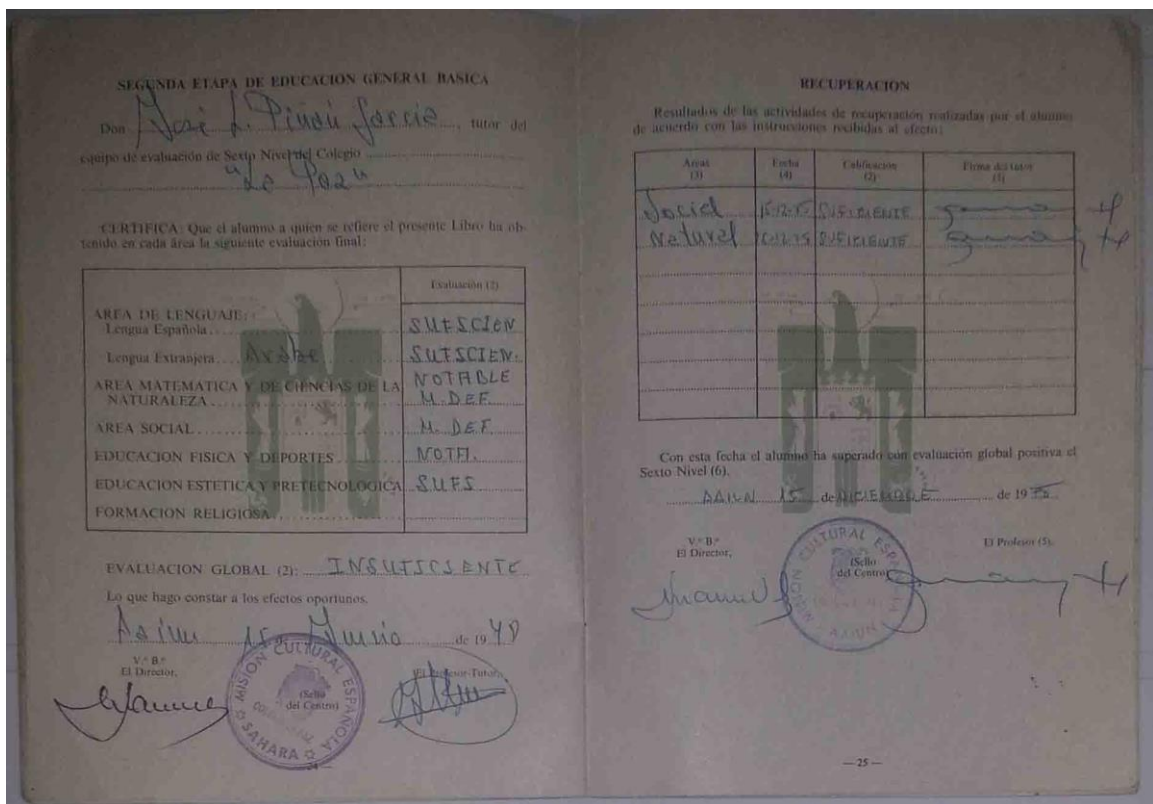 SEGUNDA ETAPA DE EDUCACION GENERAL BASICA
Don José L. Piñón García, tutor del
equipo de evaluación de Sexto Nivel del Colegio
"La Paz"
CERTIFICA: Que el alumno a quien se refiere el presente Libro ha ob-
tenido en cada área la siguiente evaluación final:
Evaluación (2)
AREA DE LENGUAJE:
Lengua Española SUFSCIEN
Lengua Extranjera Arabe SUFSCIEN.
AREA MATEMATICA Y DE CIENCIAS DE LA NOTABLE
NATURALEZA M. DEF.
AREA SOCIAL M. DEF.
EDUCACION FISICA Y DEPORTES NOTA.
EDUCACION ESTETICA Y PRETECNOLOGICA SUFS
FORMACION RELIGIOSA
EVALUACION GLOBAL (2): INSUFICIENTE
Lo que hago constar a los efectos oportunos.
Aaiun 15 Junio de 19
V.º B.º
El Director,
El Profesor-Tutor,
MISION CULTURAL ESPAÑOLA
SAHARA
(Sello
del Centro)
RECUPERACION
Resultados de las actividades de recuperación realizadas por el alumno
de acuerdo con las instrucciones recibidas al efecto:
Areas (3) Fecha (4) Calificación (2) Firma del tutor (5)
Social 15-12-75 SUFICIENTE
Natural 16-12-75 SUFICIENTE
Con esta fecha el alumno ha superado con evaluación global positiva el
Sexto Nivel (6).
AAIUN 15 de DICIEMBRE de 19
V.º B.º
El Director,
El Profesor (5),
MISION CULTURAL ESPAÑOLA
AAIUN
(Sello
del Centro)
— 25 —